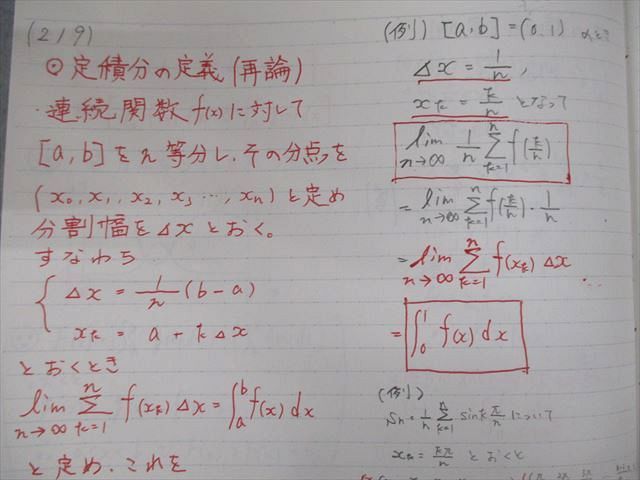 (219)
⊙定積分の定義(再論)
・連続関数f(x)に対して
[a,b]をn等分し、その分点を
(x₀, x₁, x₂, x₃ …, xₙ)と定め
分割幅をΔxとおく。
すなわち
Δx = 1/n (b-a)
xₖ = a + kΔx
とおくとき
lim n→∞ Σ k=1 n f(xₖ)Δx = ∫ₐᵇ f(x)dx
と定め、これを
(例) [a,b]=(0,1) のとき
Δx = 1/n,
xₖ = k/n となって
lim n→∞ 1/n Σ k=1 n f(k/n)
= lim n→∞ Σ k=1 n f(k/n)・1/n
= lim n→∞ Σ k=1 n f(xₖ)Δx
= ∫₀¹ f(x)dx
(例)
Sn = 1/n Σ k=1 n sin k π/n について
xₖ = kπ/n とおくと